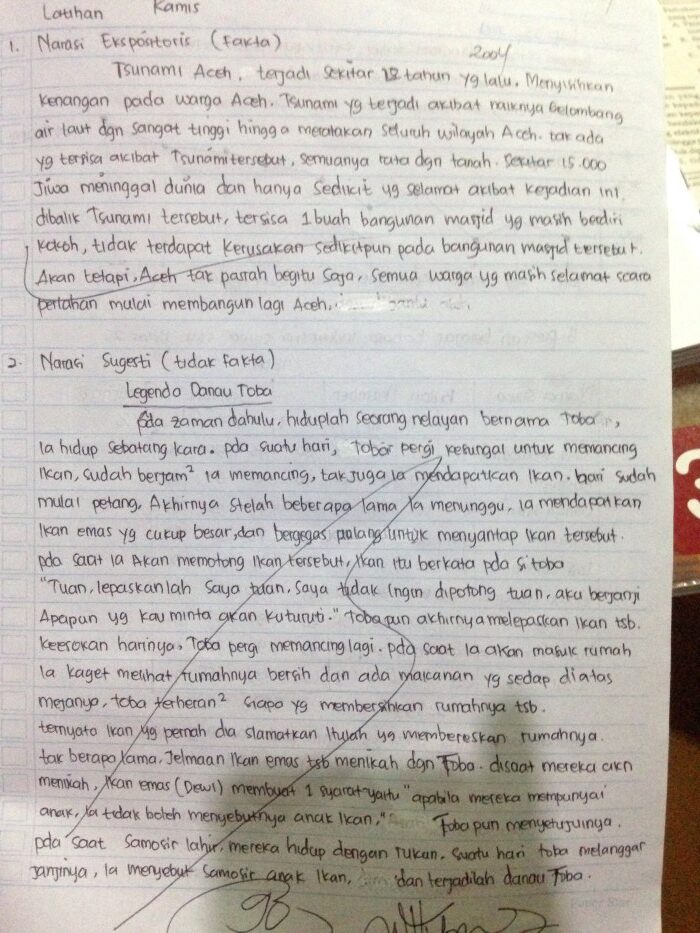 Latihan Kamis
1. Narasi Ekspositoris (Fakta)
2004
Tsunami Aceh, terjadi sekitar 12 tahun yg lalu. Menyisihkan
kenangan pada warga Aceh. Tsunami yg terjadi akibat naiknya Gelombang
air laut dgn sangat tinggi hingga meratakan seluruh wilayah Aceh. tak ada
yg tersisa akibat Tsunami tersebut, semuanya rata dgn tanah. Sekitar 15.000
Jiwa meninggal dunia dan hanya sedikit yg selamat akibat kejadian ini.
dibalik Tsunami tersebut, tersisa 1 buah bangunan masjid yg masih berdiri
kokoh, tidak terdapat kerusakan sedikitpun pada bangunan masjid tersebut.
Akan tetapi, Aceh tak pasrah begitu saja, semua warga yg masih selamat scara
perlahan mulai membangun lagi Aceh.
2. Narasi Sugesti (tidak fakta)
Legenda Danau Toba
pda zaman dahulu, hiduplah seorang nelayan bernama Toba,
Ia hidup sebatang kara. pda suatu hari, Toba pergi kesungai untuk memancing
Ikan, sudah berjam² ia memancing, tak juga Ia mendapatkan Ikan. hari sudah
mulai petang, Akhirnya stelah beberapa lama Ia menunggu, Ia mendapatkan
Ikan emas yg cukup besar, dan bergegas pulang untuk menyantap Ikan tersebut.
pda saat Ia Akan memotong Ikan tersebut, Ikan itu berkata pda si toba
"Tuan, lepaskanlah saya tuan, saya tidak ingin dipotong tuan, aku berjanji
Apapun yg kau minta akan kuturuti." Toba pun akhirnya melepaskan Ikan tsb.
keesokan harinya, Toba pergi memancing lagi. pda saat Ia akan masuk rumah
Ia kaget melihat rumahnya bersih dan ada makanan yg sedap diatas
mejanya, toba terheran² siapa yg membersihkan rumahnya tsb.
ternyata Ikan yg pernah dia slamatkan Itulah yg membereskan rumahnya.
tak berapa lama, Jelmaan Ikan emas tsb menikah dgn Toba. disaat mereka akn
menikah, Ikan emas (Dewi) membuat 1 syarat yaitu "apabila mereka mempunyai
anak, Ia tidak boleh menyebutnya anak Ikan," Toba pun menyetujuinya.
pda saat Samosir lahir, mereka hidup dengan rukun. Suatu hari toba melanggar
janjinya, Ia menyebut Samosir anak Ikan, dan terjadilah danau Toba.
98